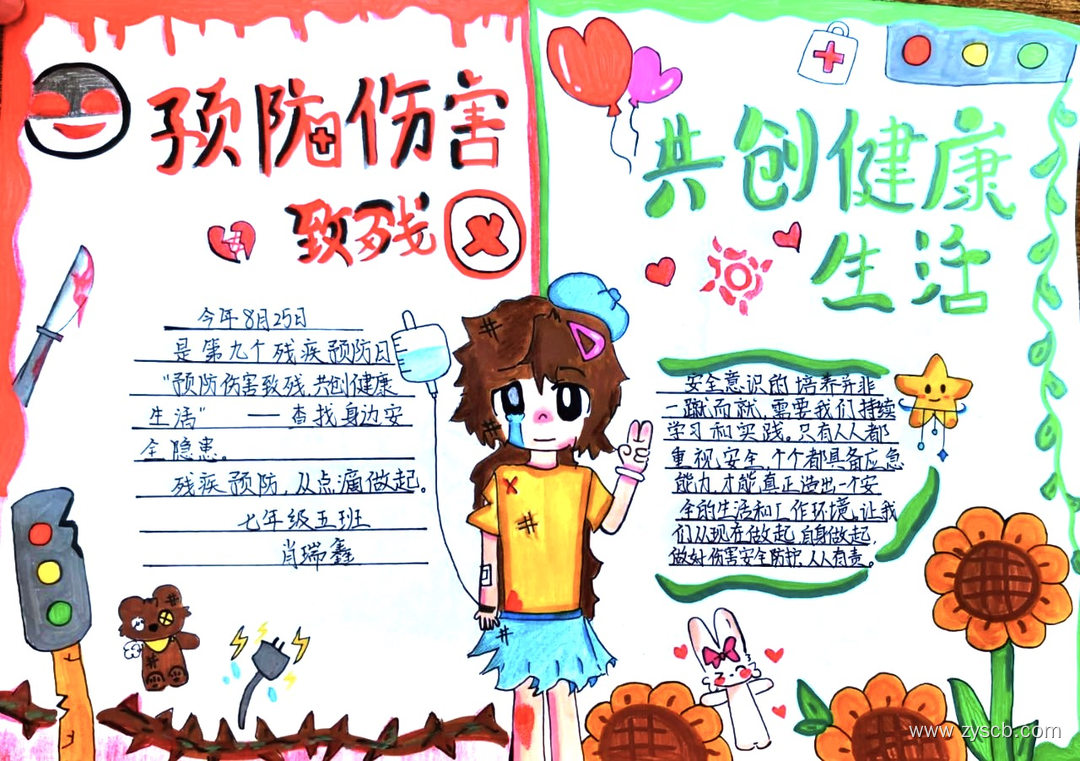 预防伤害
致残
今年8月25日
是第九个残疾预防日
“预防伤害致残,共创健康
生活” —— 查找身边安
全隐患。
残疾预防,从点滴做起。
七年级五班
肖瑞鑫
共创健康
生活
安全意识的培养并非
一蹴而就,需要我们持续
学习和实践。只有人人都
重视安全,个个都具备应急
能力,才能真正造出一个安
全的生活和工作环境,让我
们从现在做起,自身做起,
做好伤害安全防护,人人有责。
www.zyscb.com